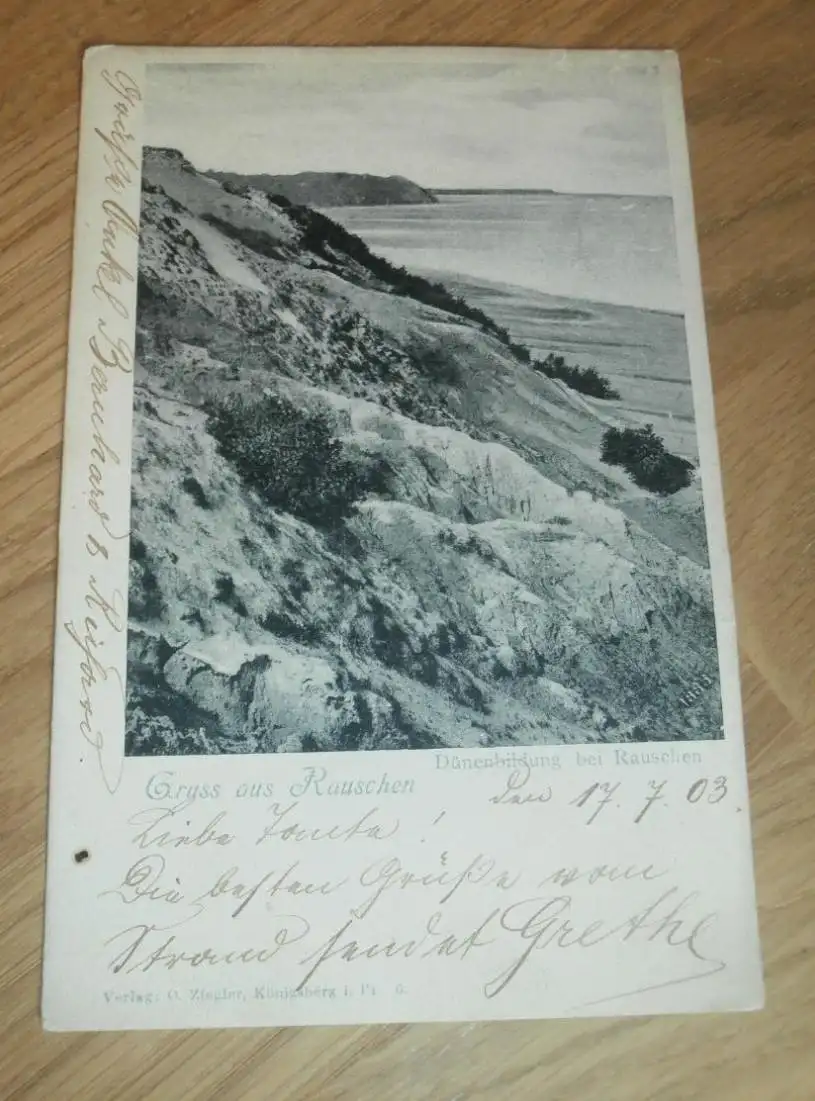 Dünenbildung bei Rauschen
Gruss aus Rauschen
den 17. 7. 03.
Liebe Tante!
Die besten Grüße vom
Strand sendet Grethe
Verlag: O. Ziegler, Königsberg i. Pr. 6.
Grüße Onkel Bernhard &